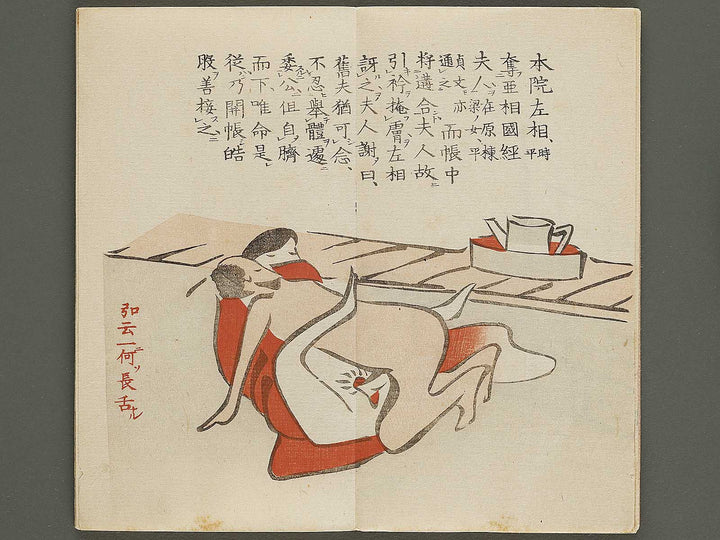 本院左相、時平
奪亞相國經
夫人梁女平在原棟
貞文亦通之而帳中
將遘合夫人故
引衿掩膚左相
訝之夫人謝曰、
舊夫猶可念、
不忍擧體遽
委公但自臍
而下、唯命是
從、乃開帳皓
股善接之
弘云一何長舌